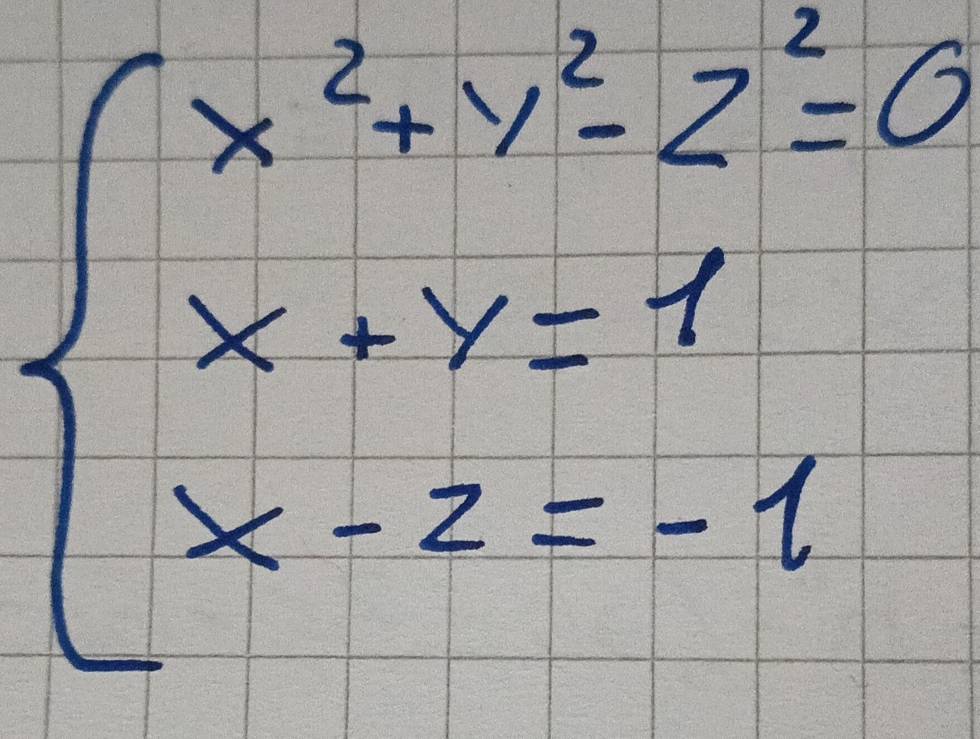 x² + y² - z² = 0
x + y = 1
x - z = -1